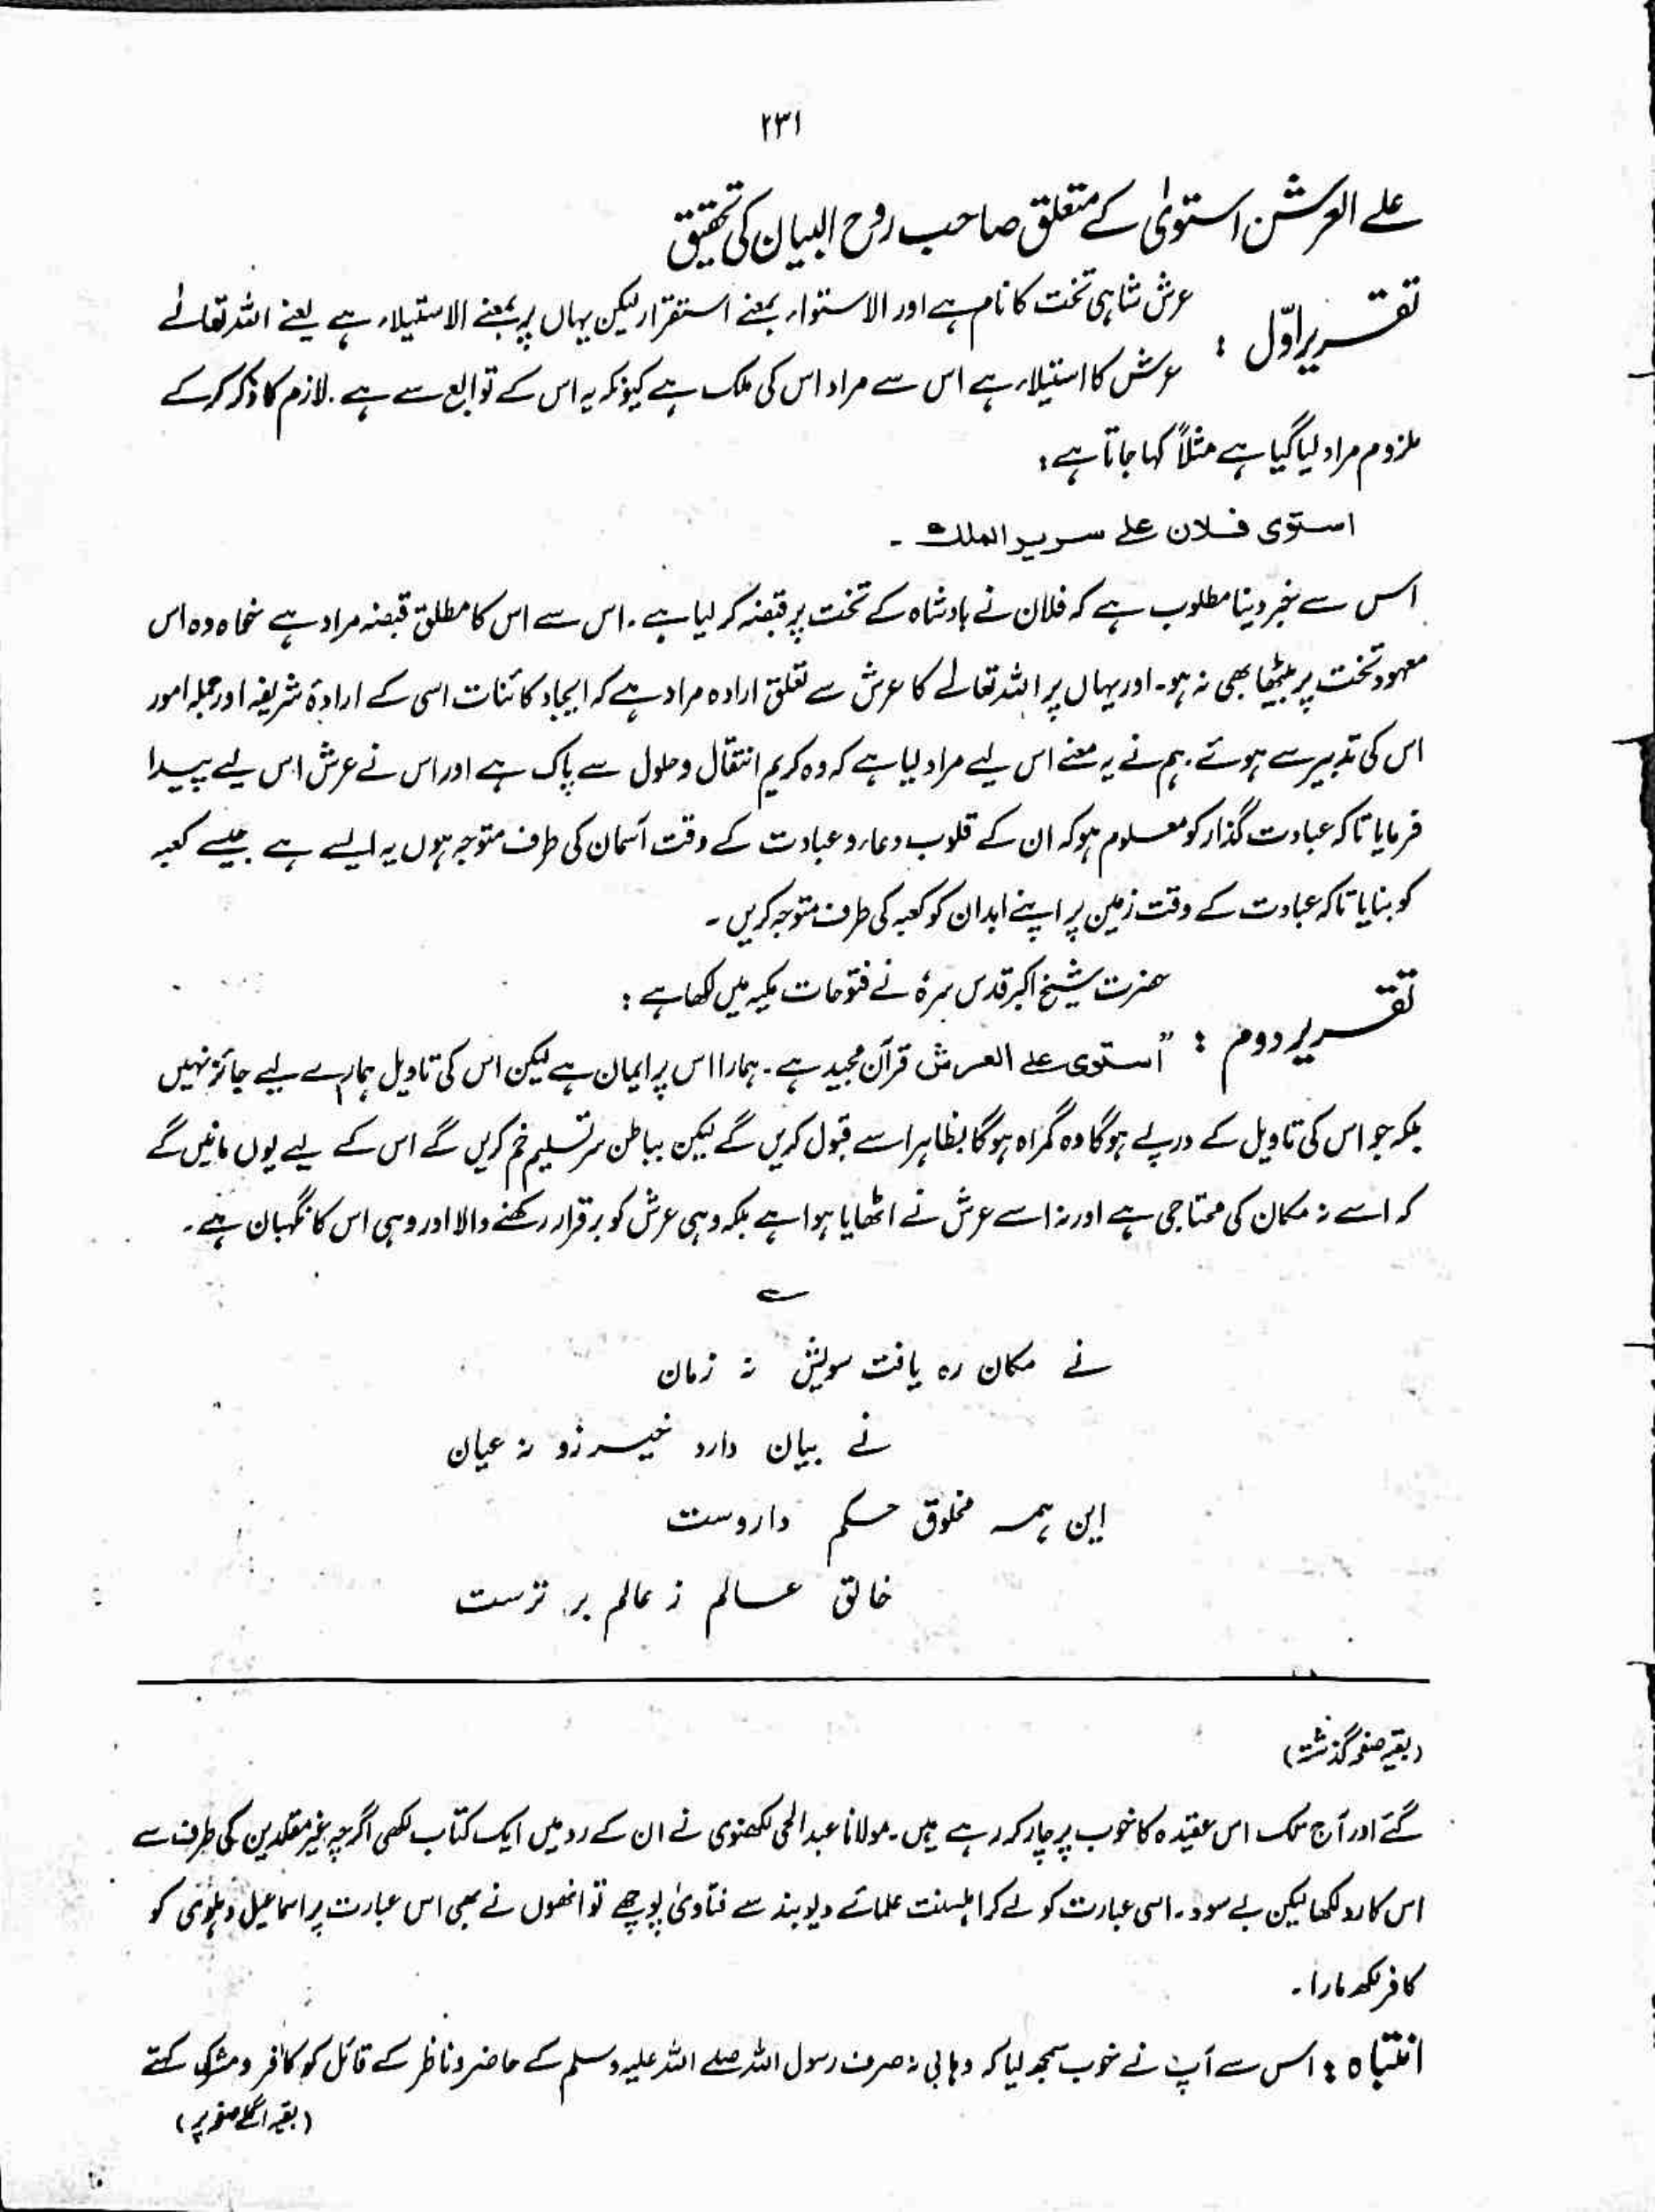 ۲۳۱
علے العرش استویٰ کے متعلق صاحب روح البیان کی تحقیق
تقریر اوّل : عرش شاہی تخت کا نام ہے اور الاستواء بمعنے استقرار لیکن یہاں پر بمعنے الاستیلاء ہے یعنے اللہ تعالےٰ
عرش کا استیلاء ہے اس سے مراد اس کی ملک ہے کیونکہ یہ اس کے توابع سے ہے ۔ لازم کا ذکر کر کے
ملزوم مراد لیا گیا ہے مثلاً کہا جاتا ہے :
استوی فلان علے سریر الملک ۔
اس سے خبر دینا مطلوب ہے کہ فلان نے بادشاہ کے تخت پر قبضہ کر لیا ہے ۔ اس سے اس کا مطلق قبضہ مراد ہے خواہ وہ اس
معہود تخت پر بیٹھا بھی نہ ہو ۔ اور یہاں پر اللہ تعالےٰ کا عرش سے تعلق ارادہ مراد ہے کہ ایجاد کائنات اسی کے ارادۂ شریفہ اور جملہ امور
اس کی تدبیر سے ہوئے ۔ ہم نے یہ معنے اس لیے مراد لیا ہے کہ وہ کریم انتقال و حلول سے پاک ہے اور اس نے عرش اس لیے پیدا
فرمایا تاکہ عبادت گذار کو معلوم ہو کہ ان کے قلوب دعاء و عبادت کے وقت آسمان کی طرف متوجہ ہوں یہ ایسے ہے جیسے کعبہ
کو بنایا تاکہ عبادت کے وقت زمین پر اپنے ابدان کو کعبہ کی طرف متوجہ کریں ۔
تقریر دوم : حضرت شیخ اکبر قدس سرہٗ نے فتوحات مکیہ میں لکھا ہے :
"استوی علے العرش قرآن مجید ہے ۔ ہمارا اس پر ایمان ہے لیکن اس کی تاویل ہمارے لیے جائز نہیں
بلکہ جو اس کی تاویل کے درپے ہوگا وہ گمراہ ہوگا بظاہر اسے قبول کریں گے لیکن بباطن سر تسلیم خم کریں گے اس کے لیے یوں مانیں گے
کہ اسے نہ مکان کی محتاجی ہے اور نہ اسے عرش نے اٹھایا ہوا ہے بلکہ وہی عرش کو برقرار رکھنے والا اور وہی اس کا نگہبان ہے ۔
ے
نے مکان رہ یافت سویش نہ زمان
نے بیان دارد خیرزو نہ عیان
این ہمہ مخلوق حکم داروست
خالق عالم ز عالم بر ترست
(بقیہ صفحہ گذشتہ)
گئے اور آج تک اس عقیدہ کا خوب پرچار کر رہے ہیں ۔ مولانا عبدالحی لکھنوی نے ان کے رد میں ایک کتاب لکھی اگرچہ غیر مقلدین کی طرف سے
اس کا رد لکھا لیکن بے سود ۔ اسی عبارت کو لے کر اہلسنت علمائے دیوبند سے فتاویٰ پوچھے تو انھوں نے بھی اس عبارت پر اسماعیل دہلوی کو
کافر لکھ مارا ۔
انتباہ : اس سے آپ نے خوب سمجھ لیا کہ وہابی نہ صرف رسول اللہ صلے اللہ علیہ وسلم کے حاضر و ناظر کے قائل کو کافر و مشرک کہتے
(بقیہ اگلے صفحہ پر)